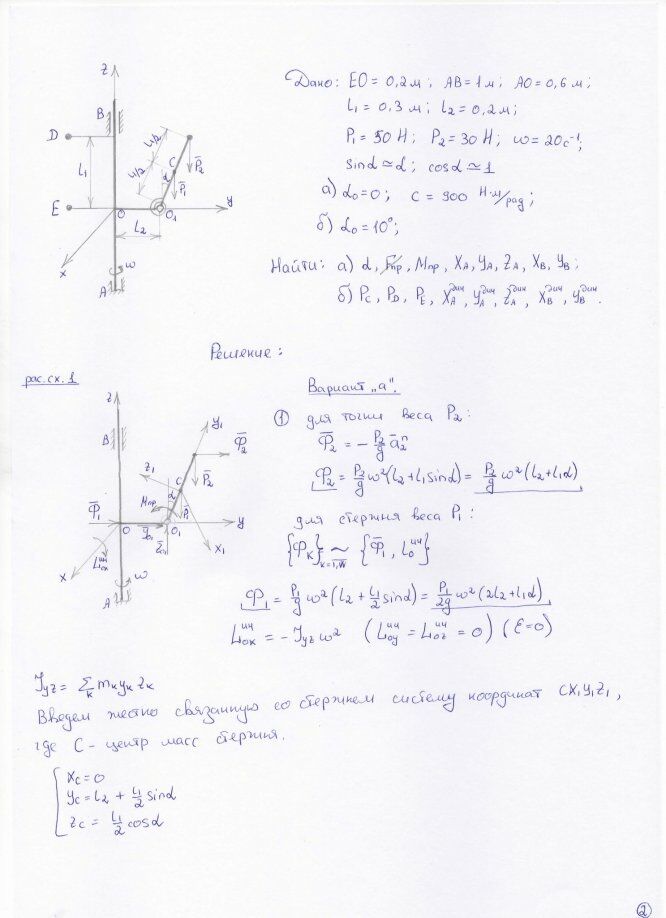 Z
B
D
L₁/2
L₁/2
C
α
P̄₂
P̄₁
L₁
E
O
O₁
y
L₂
x
ω
A
Дано: EO = 0,2 м; AB = 1 м; AO = 0,6 м;
L₁ = 0,3 м; L₂ = 0,2 м;
P₁ = 50 Н; P₂ = 30 Н; ω = 20 с⁻¹;
sinα ≃ α; cosα ≃ 1
а) α₀ = 0; C = 900 Н·м/рад;
б) α₀ = 10°;
Найти: а) α, Mпр, XA, YA, ZA, XB, YB;
б) PC, PD, PE, XAᵈⁱⁿ, YAᵈⁱⁿ, ZAᵈⁱⁿ, XBᵈⁱⁿ, YBᵈⁱⁿ.
Решение:
рас.сх. 1
Z
B
y₁
Φ̄₂
z₁
C
P̄₂
α
Mпр
P̄₁
Φ̄₁
O
O₁
y
x₁
x
Lᵒˣⁱⁿ
ω
A
Вариант "а".
① для точки веса P₂:
Φ̄₂ = - P₂/g ā₂ⁿ
Φ₂ = P₂/g ω²(L₂ + L₁ sinα) = P₂/g ω²(L₂ + L₁α)
для стержня веса P₁:
{Φ̄ₖ} ₖ₌₁,N ~ {Φ̄₁, L̄₀ᵘⁿ}
Φ₁ = P₁/g ω²(L₂ + L₁/2 sinα) = P₁/2g ω²(2L₂ + L₁α)
L₀ₓᵘⁿ = - Jyz ω² (L₀yᵘⁿ = L₀zᵘⁿ = 0) (ε = 0)
Jyz = Σₖ mₖyₖzₖ
Введем жестко связанную со стержнем систему координат CX₁Y₁Z₁,
где C - центр масс стержня.
xC = 0
yC = L₂ + L₁/2 sinα
zC = L₁/2 cosα
2